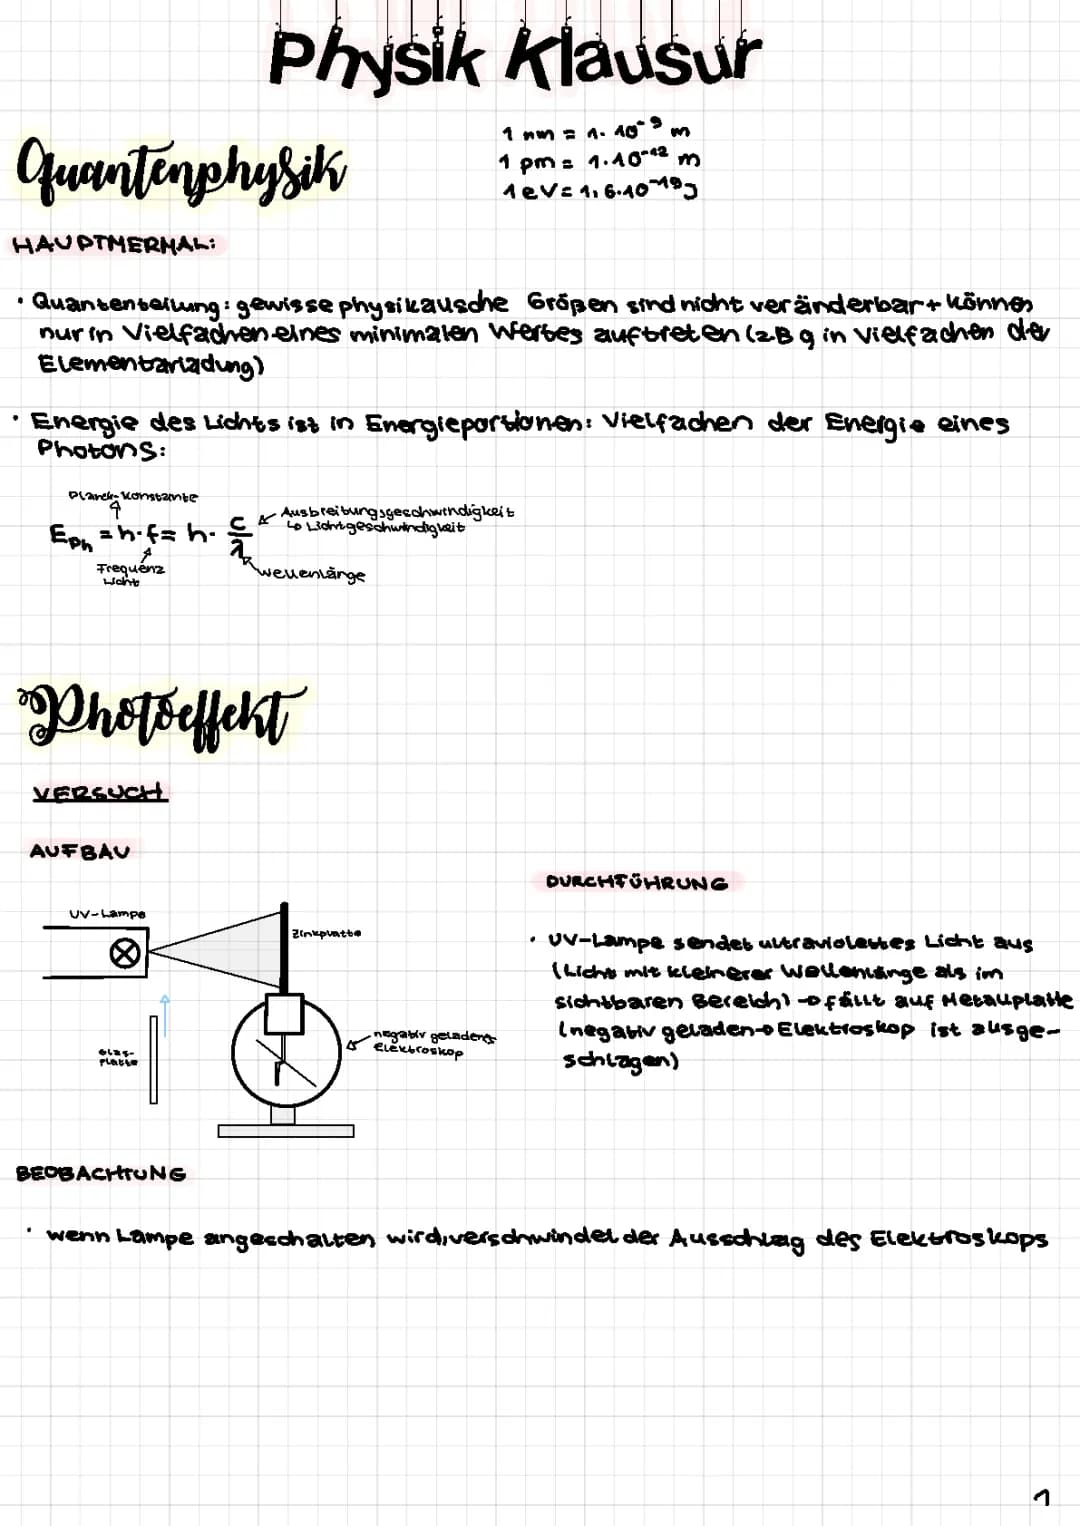 Physik Klausur
Quantenphysik
1 nm = 1. 10⁻⁹ m
1 pm = 1.10⁻¹² m
1eV = 1,6.10⁻¹⁹J
HAUPTMERMAL:
• Quantenteilung: gewisse physikalische Größen sind nicht veränderbar + können
nur in Vielfachen eines minimalen Wertes auftreten (z.B q in Vielfachen der
Elementarladung)
• Energie des Lichts ist in Energieportionen: Vielfachen der Energie eines
Photons:
Planck-Konstante
E_Ph = h·f = h· c/λ
Ausbreitungsgeschwindigkeit
↳ Lichtgeschwindigkeit
Frequenz
Licht
Wellenlänge
Photoeffekt
VERSUCH
AUFBAU
DURCHFÜHRUNG
UV-Lampe
Zinkplatte
Glas-
platte
negativ geladenes
Elektroskop
• UV-Lampe sendet ultraviolettes Licht aus
(Licht mit kleinerer Wellenlänge als im
sichtbaren Bereich) → fällt auf Metallplatte
(negativ geladen → Elektroskop ist ausge-
schlagen)
BEOBACHTUNG
• wenn Lampe angeschalten wird, verschwindet der Ausschlag des Elektroskops
1